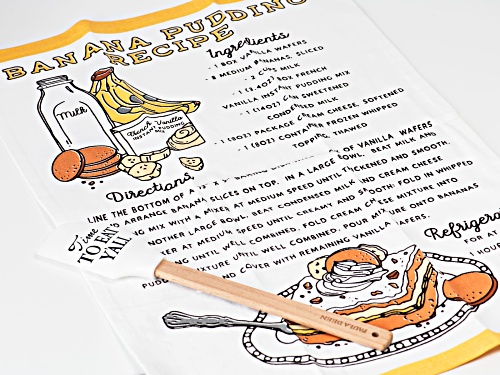 BANANA PUDDING
RECIPE
Ingredients
• 1 BOX VANILLA WAFERS
• 8 MEDIUM BANANAS, SLICED
• 2 CUPS MILK
• 1 (3.4OZ) BOX FRENCH
VANILLA INSTANT PUDDING MIX
• 1 (14OZ) CAN SWEETENED
CONDENSED MILK
• 1 (8OZ) PACKAGE CREAM CHEESE, SOFTENED
• 1 (8OZ) CONTAINER FROZEN WHIPPED
TOPPING, THAWED
Milk
French Vanilla
INSTANT PUDDING
MIX
Directions
LINE THE BOTTOM OF A OF VANILLA WAFERS
AND ARRANGE BANANA SLICES ON TOP. IN A LARGE BOWL, BEAT MILK AND
PUDDING MIX WITH A MIXER AT MEDIUM SPEED UNTIL THICKENED AND SMOOTH.
ANOTHER LARGE BOWL, BEAT CONDENSED MILK AND CREAM CHEESE
AT MEDIUM SPEED UNTIL CREAMY AND SMOOTH; FOLD IN WHIPPED
UNTIL WELL COMBINED. FOLD CREAM CHEESE MIXTURE INTO
PUDDING MIXTURE UNTIL WELL COMBINED. POUR MIXTURE ONTO BANANAS
AND COVER WITH REMAINING VANILLA WAFERS.
Time
TO EAT
Y'ALL
PAULA DEEN
Refrigera
FOR AT
1 HOU